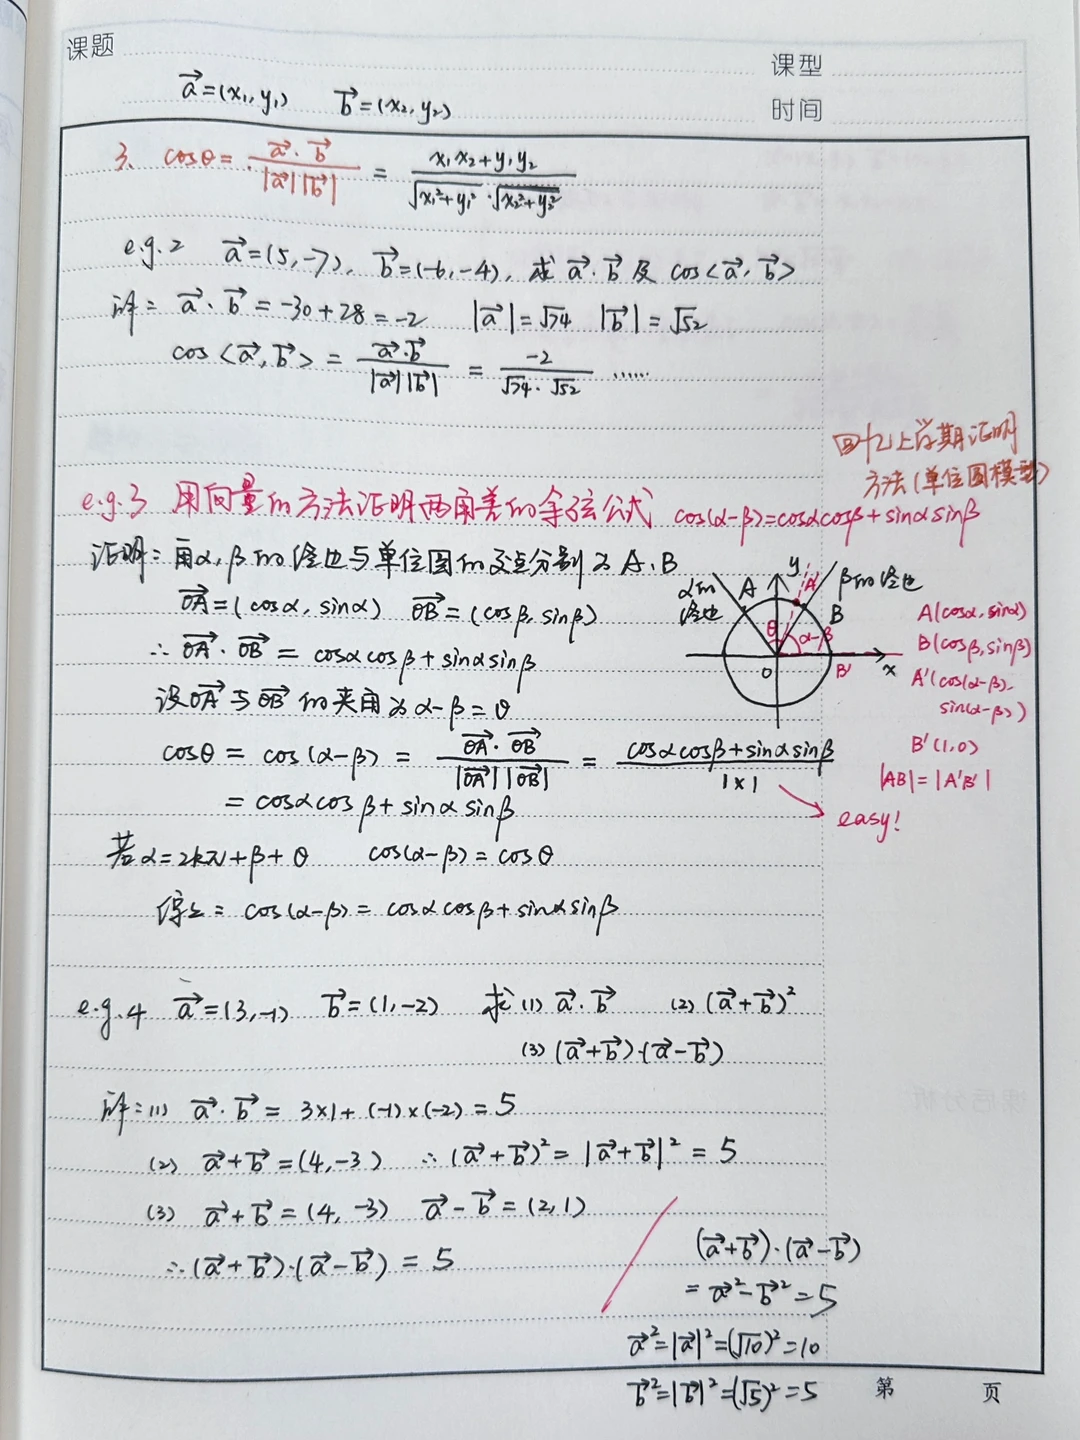 课题
课型
a⃗=(x₁,y₁) b⃗=(x₂,y₂)
时间
3、cosθ = a⃗·b⃗ / |a⃗||b⃗| = x₁x₂+y₁y₂ / √x₁²+y₁² · √x₂²+y₂²
e.g.2 a⃗=(5,-7), b⃗=(-6,-4), 求 a⃗·b⃗ 及 cos<a⃗,b⃗>
解: a⃗·b⃗ = -30+28=-2 |a⃗|=√74 |b⃗|=√52
cos<a⃗,b⃗> = a⃗·b⃗ / |a⃗||b⃗| = -2 / √74·√52 ……
回忆上学期证明
方法(单位圆模型)
e.g.3 用向量的方法证明两角差的余弦公式 cos(α-β)=cosαcosβ+sinαsinβ
证明: 角α,β的终边与单位圆的交点分别为A、B
OA⃗=(cosα, sinα) OB⃗=(cosβ, sinβ)
∴ OA⃗·OB⃗ = cosαcosβ+sinαsinβ
设OA⃗与OB⃗的夹角为α-β=θ
cosθ = cos(α-β) = OA⃗·OB⃗ / |OA⃗||OB⃗| = cosαcosβ+sinαsinβ / 1×1
= cosαcosβ+sinαsinβ
easy!
α的
终边
A
y
A'
β的终边
B
θ
α-β
O
B'
x
A(cosα, sinα)
B(cosβ, sinβ)
A'(cos(α-β),
sin(α-β))
B'(1,0)
|AB|=|A'B'|
若α=2kπ+β+θ cos(α-β)=cosθ
综上: cos(α-β) = cosαcosβ+sinαsinβ
e.g.4 a⃗=(3,-1) b⃗=(1,-2) 求 (1) a⃗·b⃗ (2) (a⃗+b⃗)²
(3) (a⃗+b⃗)·(a⃗-b⃗)
解:(1) a⃗·b⃗ = 3×1+(-1)×(-2)=5
(2) a⃗+b⃗=(4,-3) ∴(a⃗+b⃗)²=|a⃗+b⃗|²=5
(3) a⃗+b⃗=(4,-3) a⃗-b⃗=(2,1)
∴(a⃗+b⃗)·(a⃗-b⃗) = 5
(a⃗+b⃗)·(a⃗-b⃗)
= a⃗²-b⃗²=5
a⃗²=|a⃗|²=(√10)²=10
b⃗²=|b⃗|²=(√5)²=5
第 页